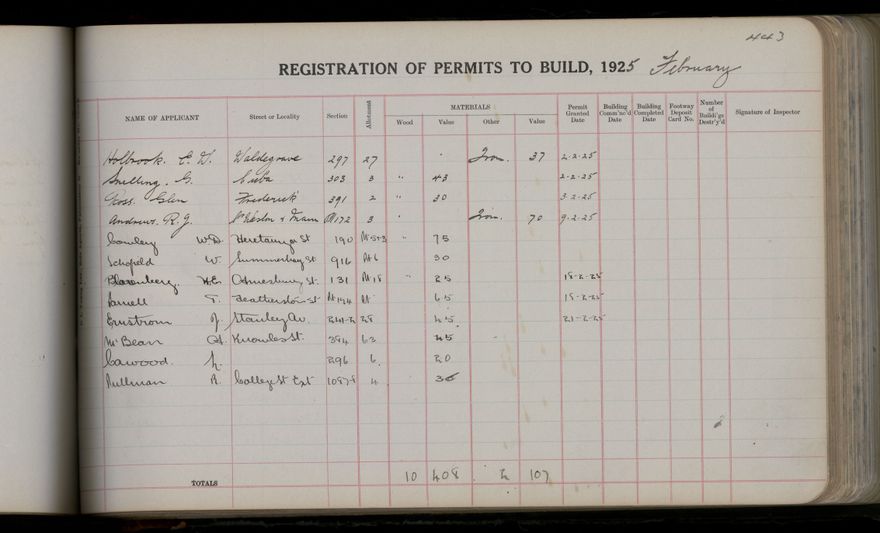 443
REGISTRATION OF PERMITS TO BUILD, 1925 February
NAME OF APPLICANT Street or Locality Section Allotment MATERIALS Permit Granted Date Building Comm'nc'd Date Building Completed Date Footway Deposit Card No. Number of Buildi'gs Destr'y'd Signature of Inspector
Wood Value Other Value
Holbrook. E. W. Waldegrave 297 27 Iron. 37 2-2-25
Snelling. G. Cuba 303 3 " 43 2-2-25
Ross. Glen Frederick 391 2 " 30 3-2-25
Andrews. R. J. Chester & Main 172 3 " Iron. 70 9-2-25
Cowley W.D. Heretaunga St 190 " 75
Schofield W. Summerhay St 916 Pt 6 30
H.E. St. 131 Pt 18 " 25 18-2-25
Parnell T. Featherston St Pt 194 Pt 65 18-2-25
Ernstrom J. Stanley Av. 28 45 21-2-25
McBean Knowles St. 384 62 45
Cawood. 296 6 20
Pullman A. College St Ext 4 36
TOTALS 10 408 2 107